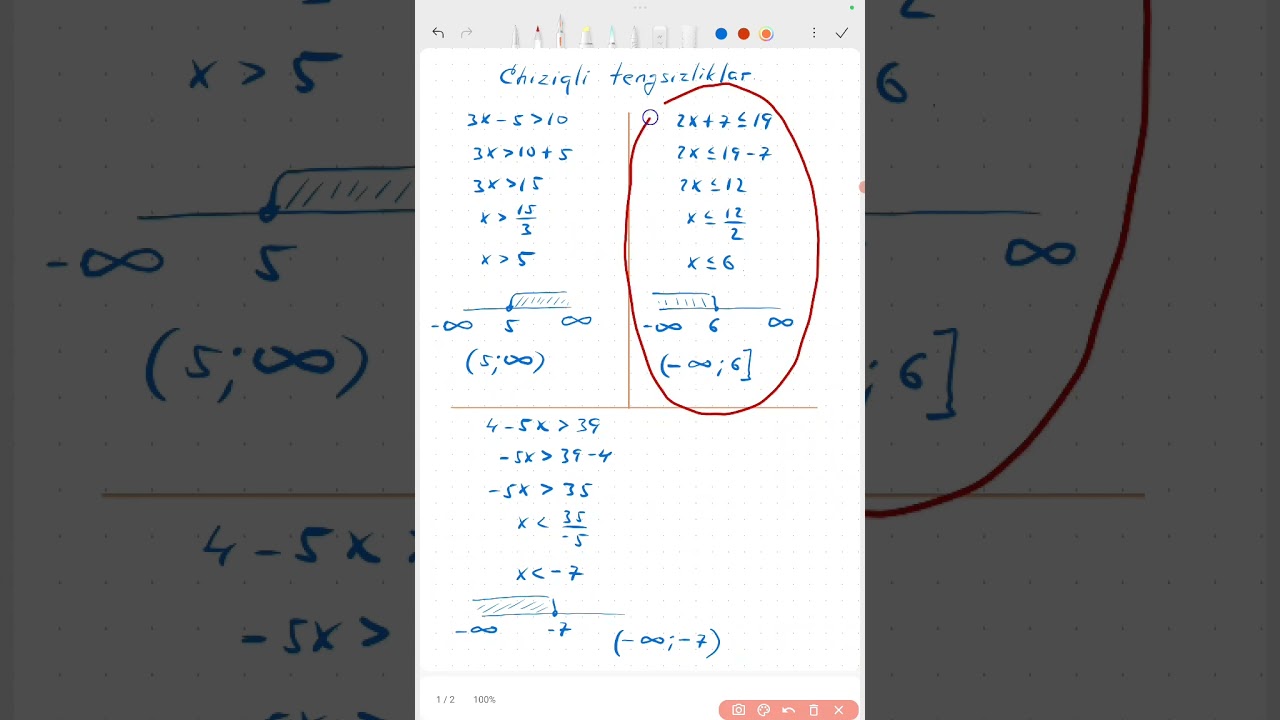 Chiziqli tengsizliklar.
3x - 5 > 10
3x > 10 + 5
3x > 15
x > 15/3
x > 5
-∞ 5 ∞
(5; ∞)
2x + 7 ≤ 19
2x ≤ 19 - 7
2x ≤ 12
x ≤ 12/2
x ≤ 6
-∞ 6 ∞
(-∞; 6]
4 - 5x > 39
-5x > 39 - 4
-5x > 35
x < 35/-5
x < -7
-∞ -7
(-∞; -7)
1 / 2 100%